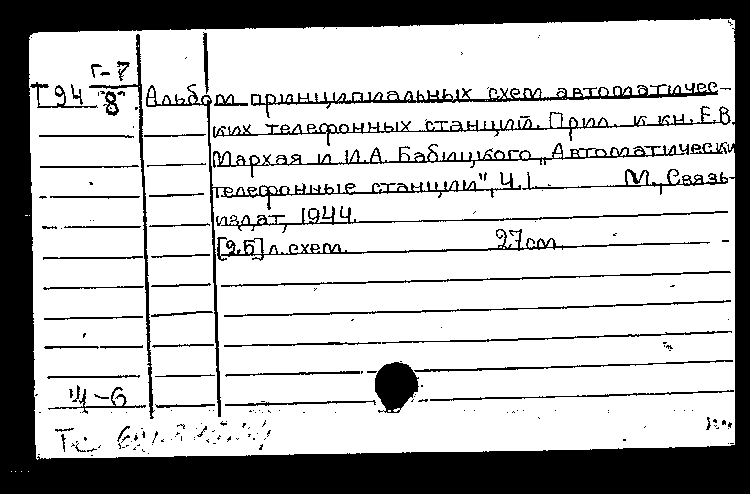 Г-7
Т 94 8 Альбом принципиальных схем автоматичес-
ких телефонных станций. Прил. к кн. Е.В.
Мархая и И.А. Бабицкого „Автоматически
телефонные станции", Ч. I М., Связь-
издат, 1944.
[25] л. схем. 27 см.
Щ-6